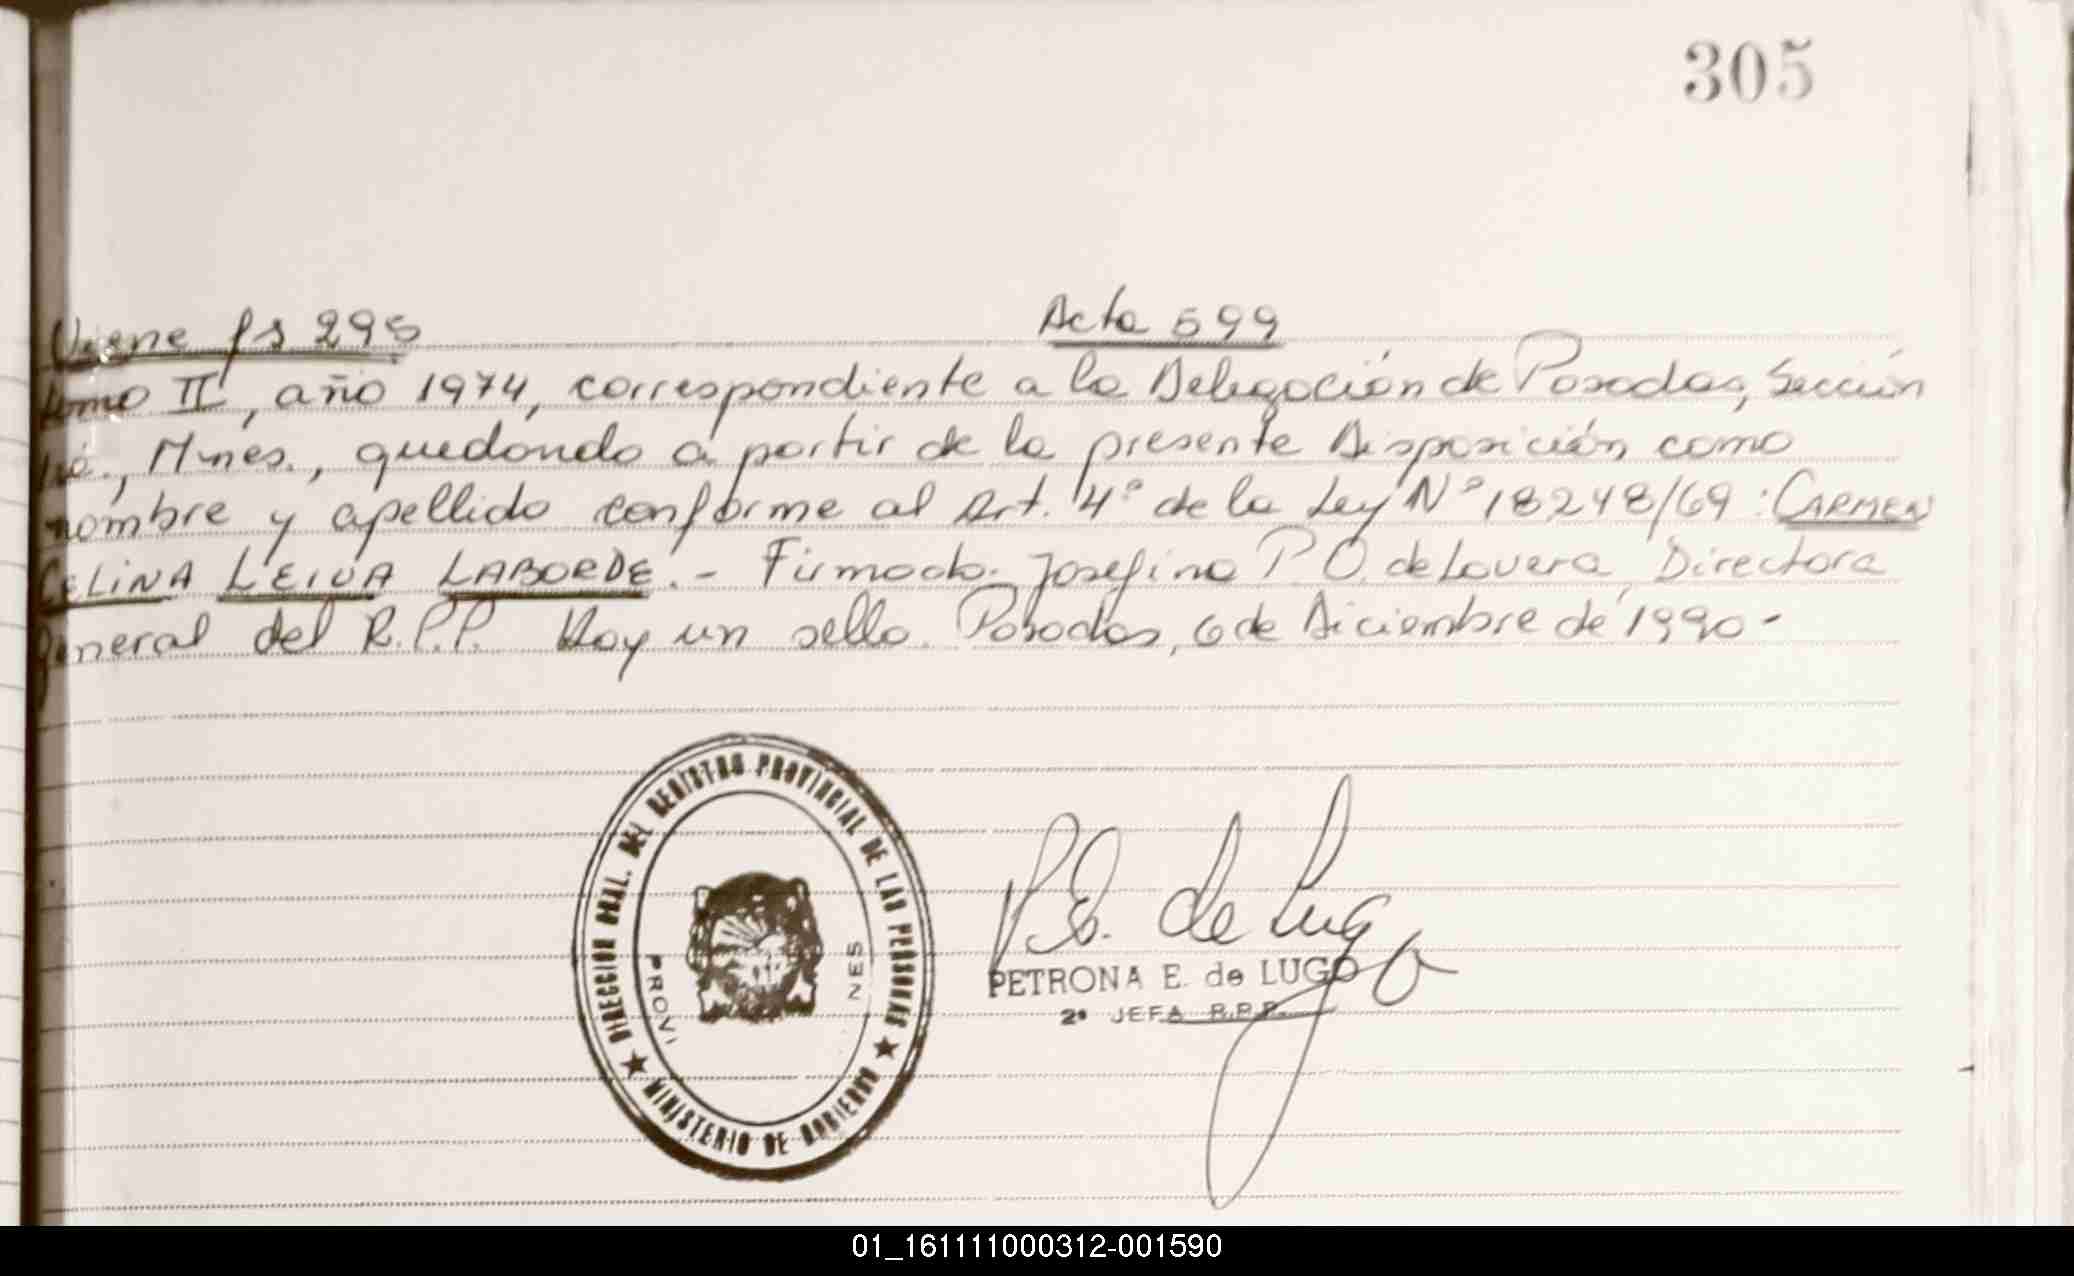 305
Viene fs 295 Acta 599
tomo II, año 1974, correspondiente a la Delegación de Posadas, Sección
, Mnes., quedando a partir de la presente Disposición como
nombre y apellido conforme al Art. 4º de la Ley Nº 18248/69: CARMEN
CELINA LEIVA LABORDE.- Firmado. Josefina P. O. de Lovera Directora
general del R.P.P. Hay un sello. Posadas, 6 de Diciembre de 1990-
DIRECCION GRAL. DEL REGISTRO PROVINCIAL DE LAS PERSONAS
MINISTERIO DE GOBIERNO
PROVI NES
P.E. de Lugo
PETRONA E. de LUGO
2ª JEFA R.P.P.
01_161111000312-001590